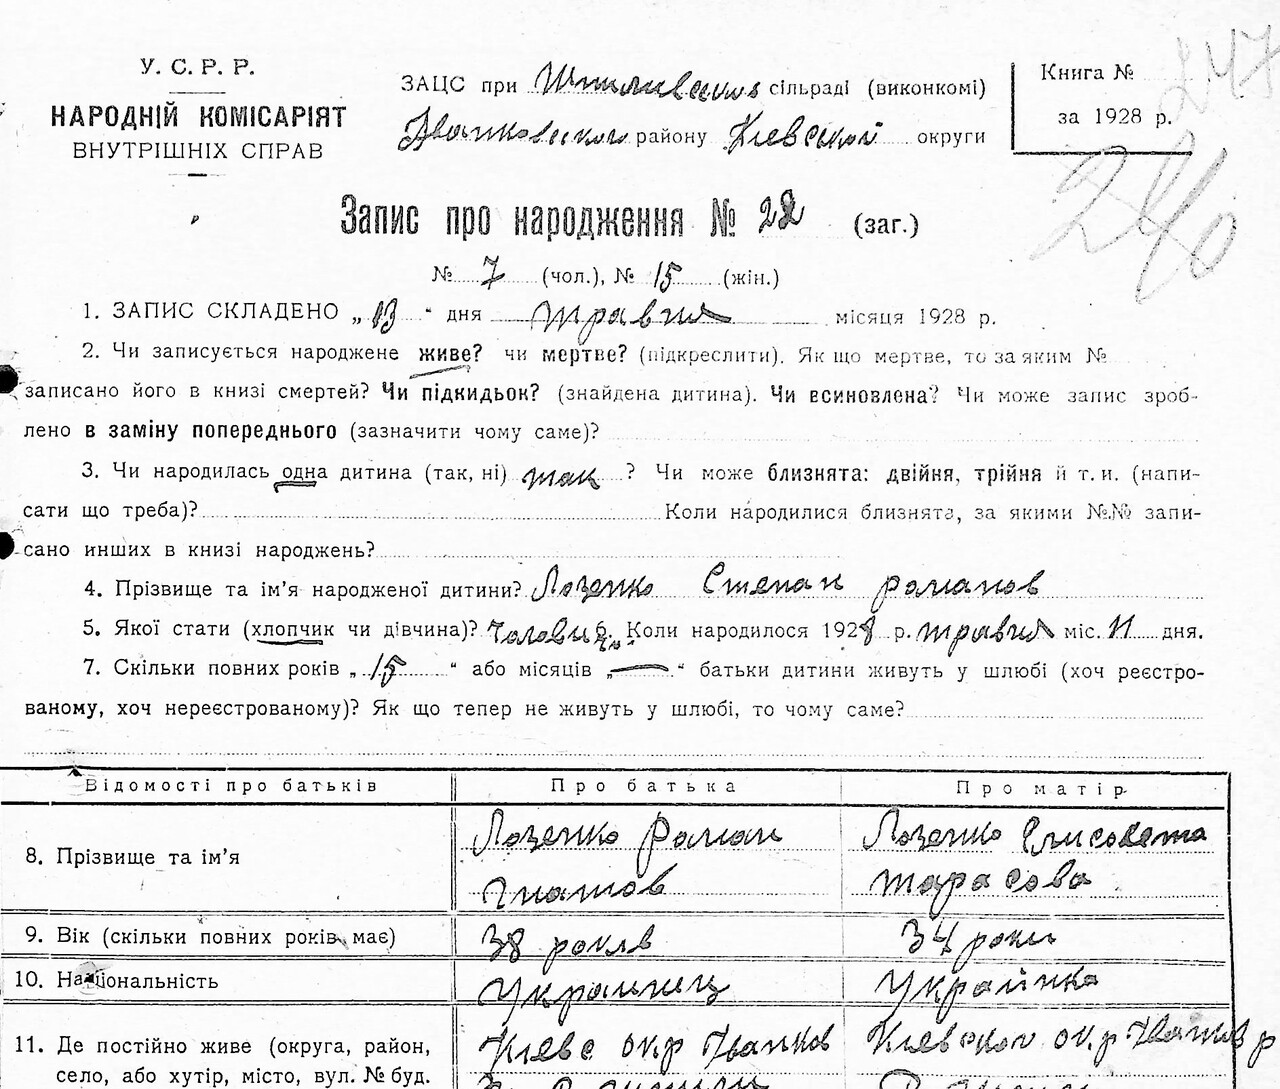 У. С. Р. Р.
НАРОДНІЙ КОМІСАРІЯТ
ВНУТРІШНІХ СПРАВ
ЗАЦС при сільраді (виконкомі)
району Киевской округи
Книга № 247
за 1928 р.
240
Запис про народження № 22 (заг.)
№ 7 (чол.), № 15 (жін.)
1. ЗАПИС СКЛАДЕНО „13“ дня травня місяця 1928 р.
2. Чи записується народжене живе? чи мертве? (підкреслити). Як що мертве, то за яким №
записано його в книзі смертей? Чи підкидьок? (знайдена дитина). Чи всиновлена? Чи може запис зроб-
лено в заміну попереднього (зазначити чому саме)?
3. Чи народилась одна дитина (так, ні) так ? Чи може близнята: двійня, трійня й т. и. (напи-
сати що треба)? Коли народилися близнята, за якими №№ запи-
сано инших в книзі народжень?
4. Прізвище та ім’я народженої дитини? Лозенко Степан романов
5. Якої стати (хлопчик чи дівчина)? Коли народилося 1928 р. травня міс. 11 дня.
7. Скільки повних років „15“ або місяців „—“ батьки дитини живуть у шлюбі (хоч реєстро-
ваному, хоч нереєстрованому)? Як що тепер не живуть у шлюбі, то чому саме?
Відомості про батьків Про батька Про матір
8. Прізвище та ім’я
Лозенко Роман
Гнатов
Лозенко Єлисовета
тарасова
9. Вік (скільки повних років має) 38 років 34 роки
10. Національність Українец Українка
11. Де постійно живе (округа, район,
село, або хутір, місто, вул. № буд.
Киевс ок. р Іванков
Киевской ок. р Іванков р